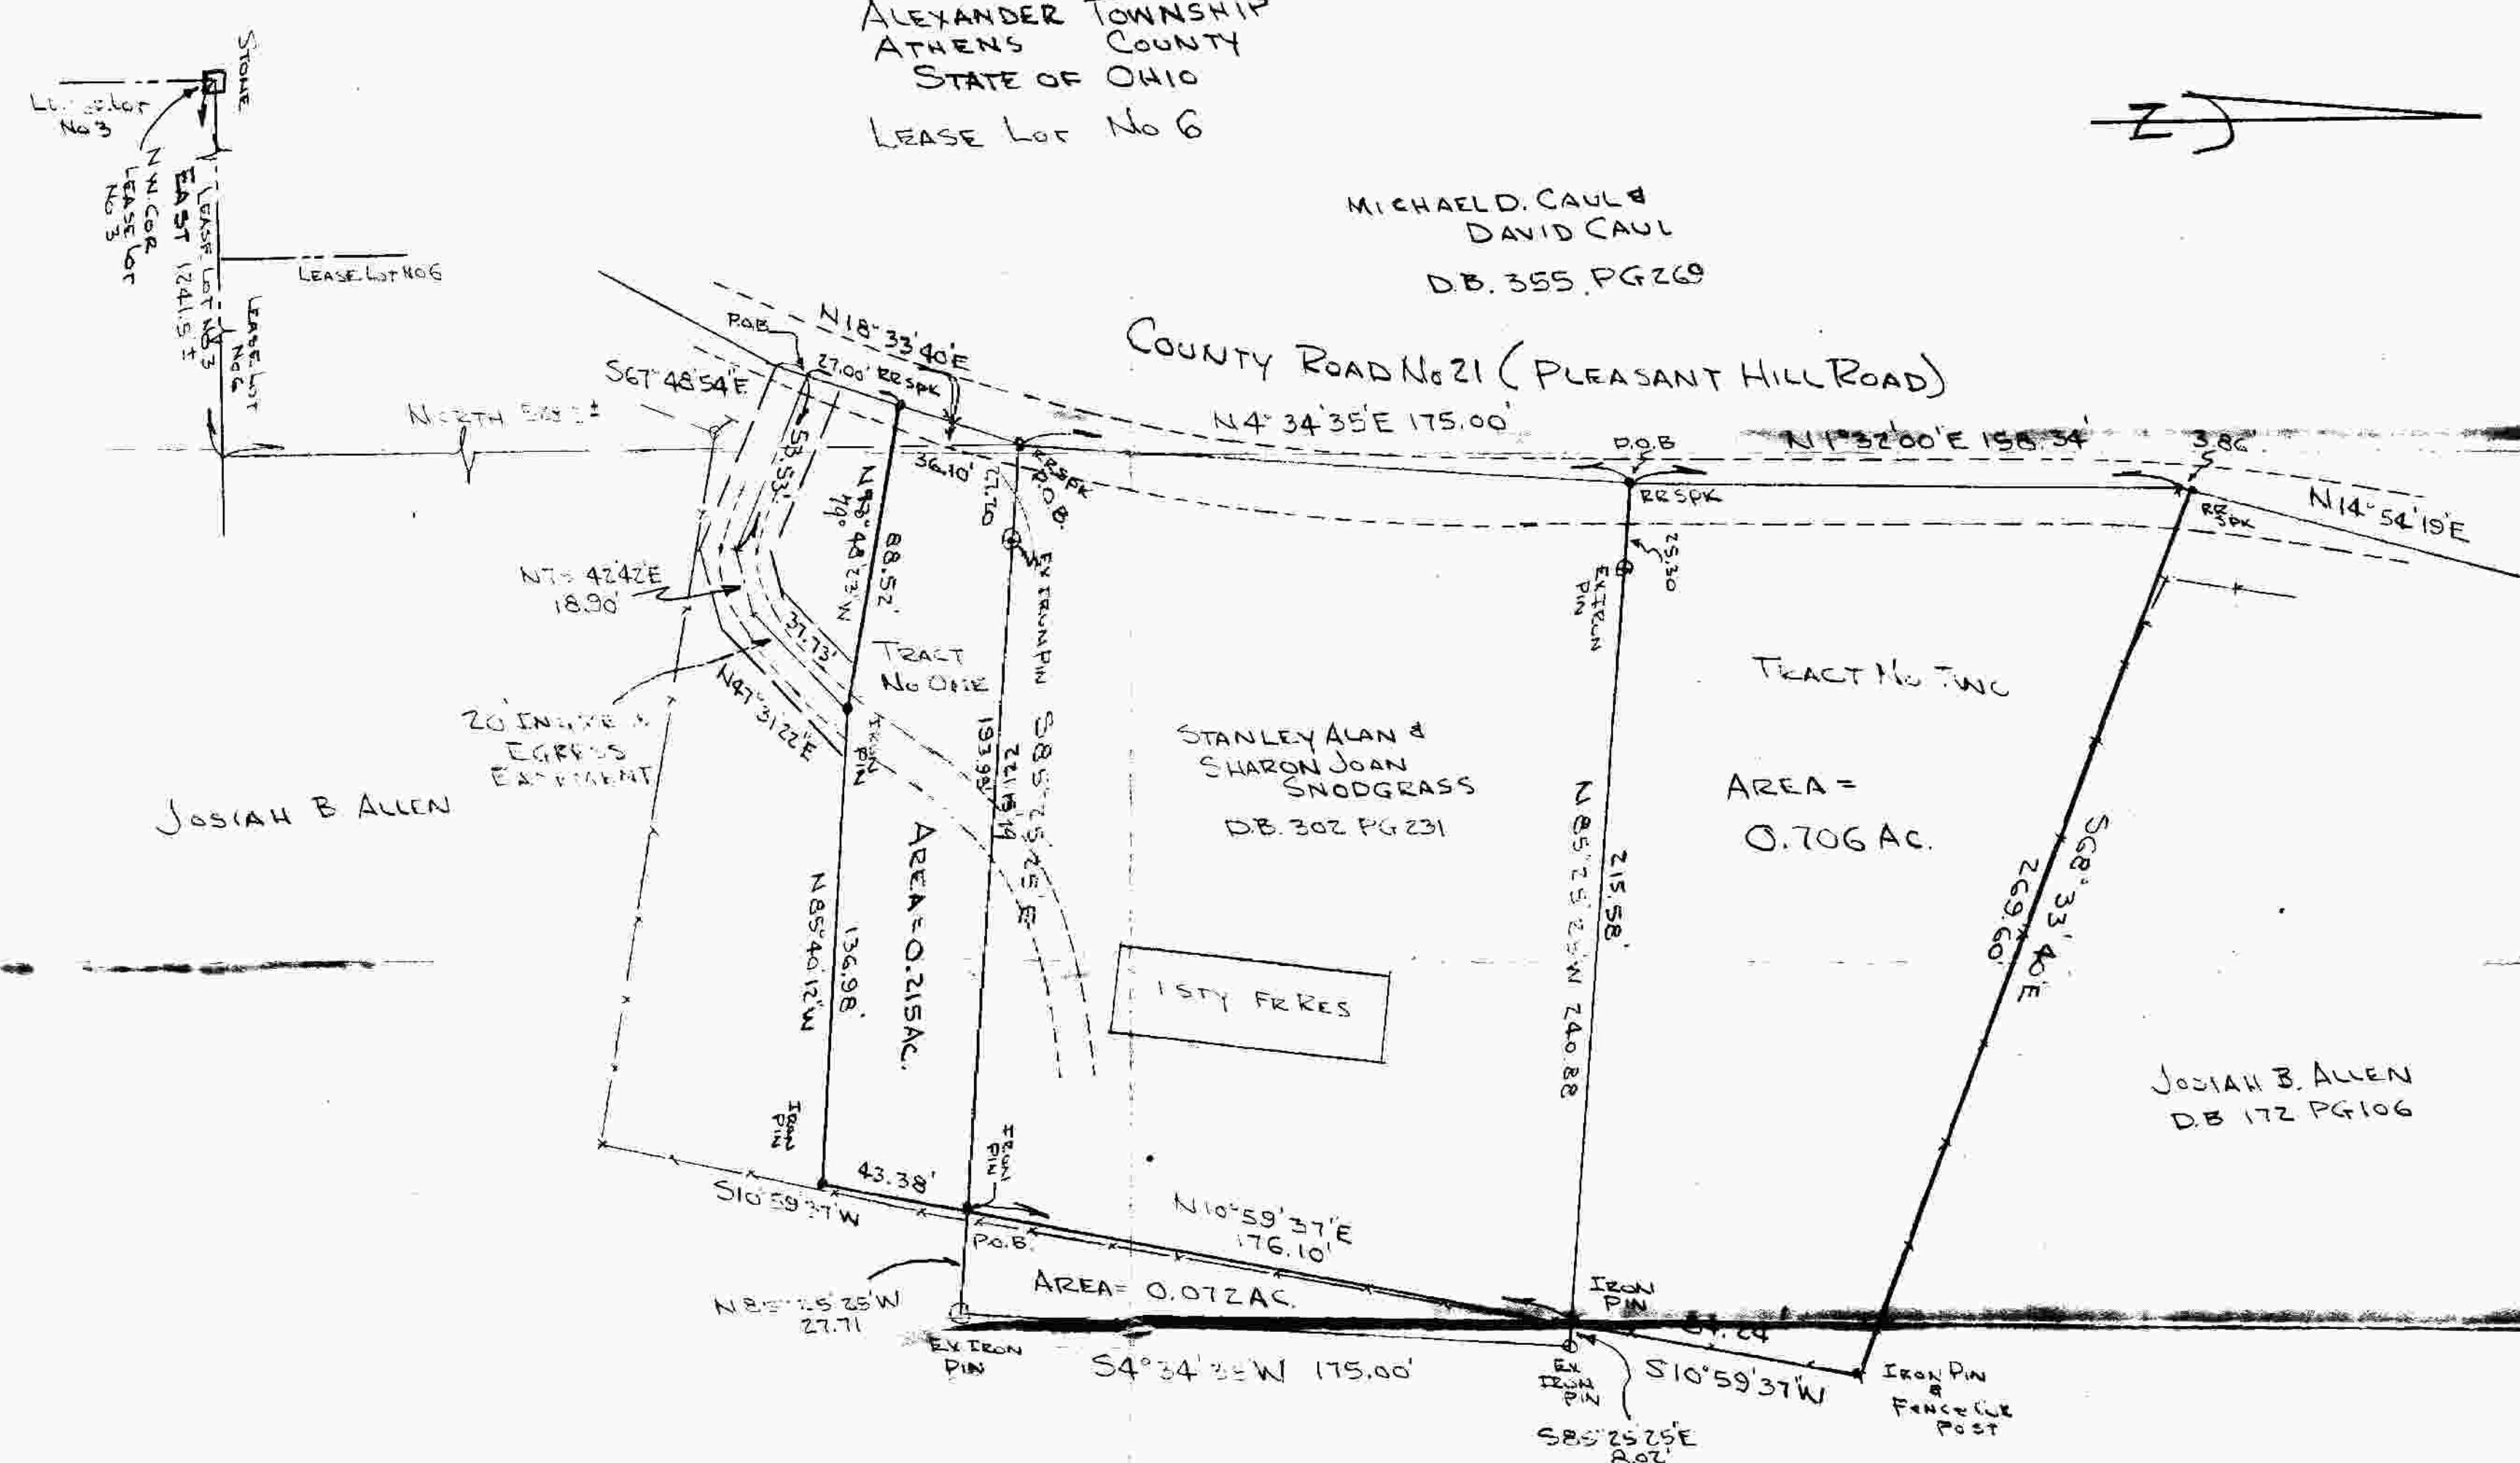 ALEXANDER TOWNSHIP
ATHENS COUNTY
STATE OF OHIO
LEASE LOT No 6
STONE
Lot
No 3
N.W. COR
LEASE LOT
No 3
EAST 1241.5 ±
LEASE LOT No 3
LEASE LOT No 6
LEASE LOT
No 6
NORTH
Z
MICHAEL D. CAUL &
DAVID CAUL
D.B. 355 PG 269
COUNTY ROAD No 21 (PLEASANT HILL ROAD)
P.O.B
N18° 33' 40"E
27.00' RR SPK
S67° 48' 54"E
N4° 34' 35"E 175.00'
P.O.B
N1° 32' 00"E 158.34'
3.86'
36.10'
RR SPK
P.O.B.
27.70
RR SPK
RR
SPK
N14° 54' 19"E
53.53'
48' 23"W
79°
88.52'
25.30
EX IRON
PIN
EX IRON PIN S85° 25' 25" E
42' 42"E
18.90'
37.73'
N47° 31' 22"E
TRACT
No ONE
IRON
PIN
20'
EGRESS
EASEMENT
193.95'
JOSIAH B ALLEN
STANLEY ALAN &
SHARON JOAN
SNODGRASS
D.B. 302 PG 231
TRACT No TWO
AREA =
0.706 AC.
N 85° 25' 25"W 240.88
215.58'
S68° 33' 40"E
269.60'
N85° 40' 12"W
136.98'
AREA = 0.215 AC.
1 STY FR RES
JOSIAH B. ALLEN
D.B 172 PG 106
IRON
PIN
IRON
PIN
43.38'
S10° 59' 37"W
P.O.B.
N10° 59' 37"E
176.10'
AREA = 0.072 AC.
25' 25"W
27.71
EX IRON
PIN
S4° 34' 35"W 175.00'
IRON
PIN
EX
IRON
PIN
S10° 59' 37"W
IRON PIN
&
FENCE
POST
S85° 25' 25"E
8.02'